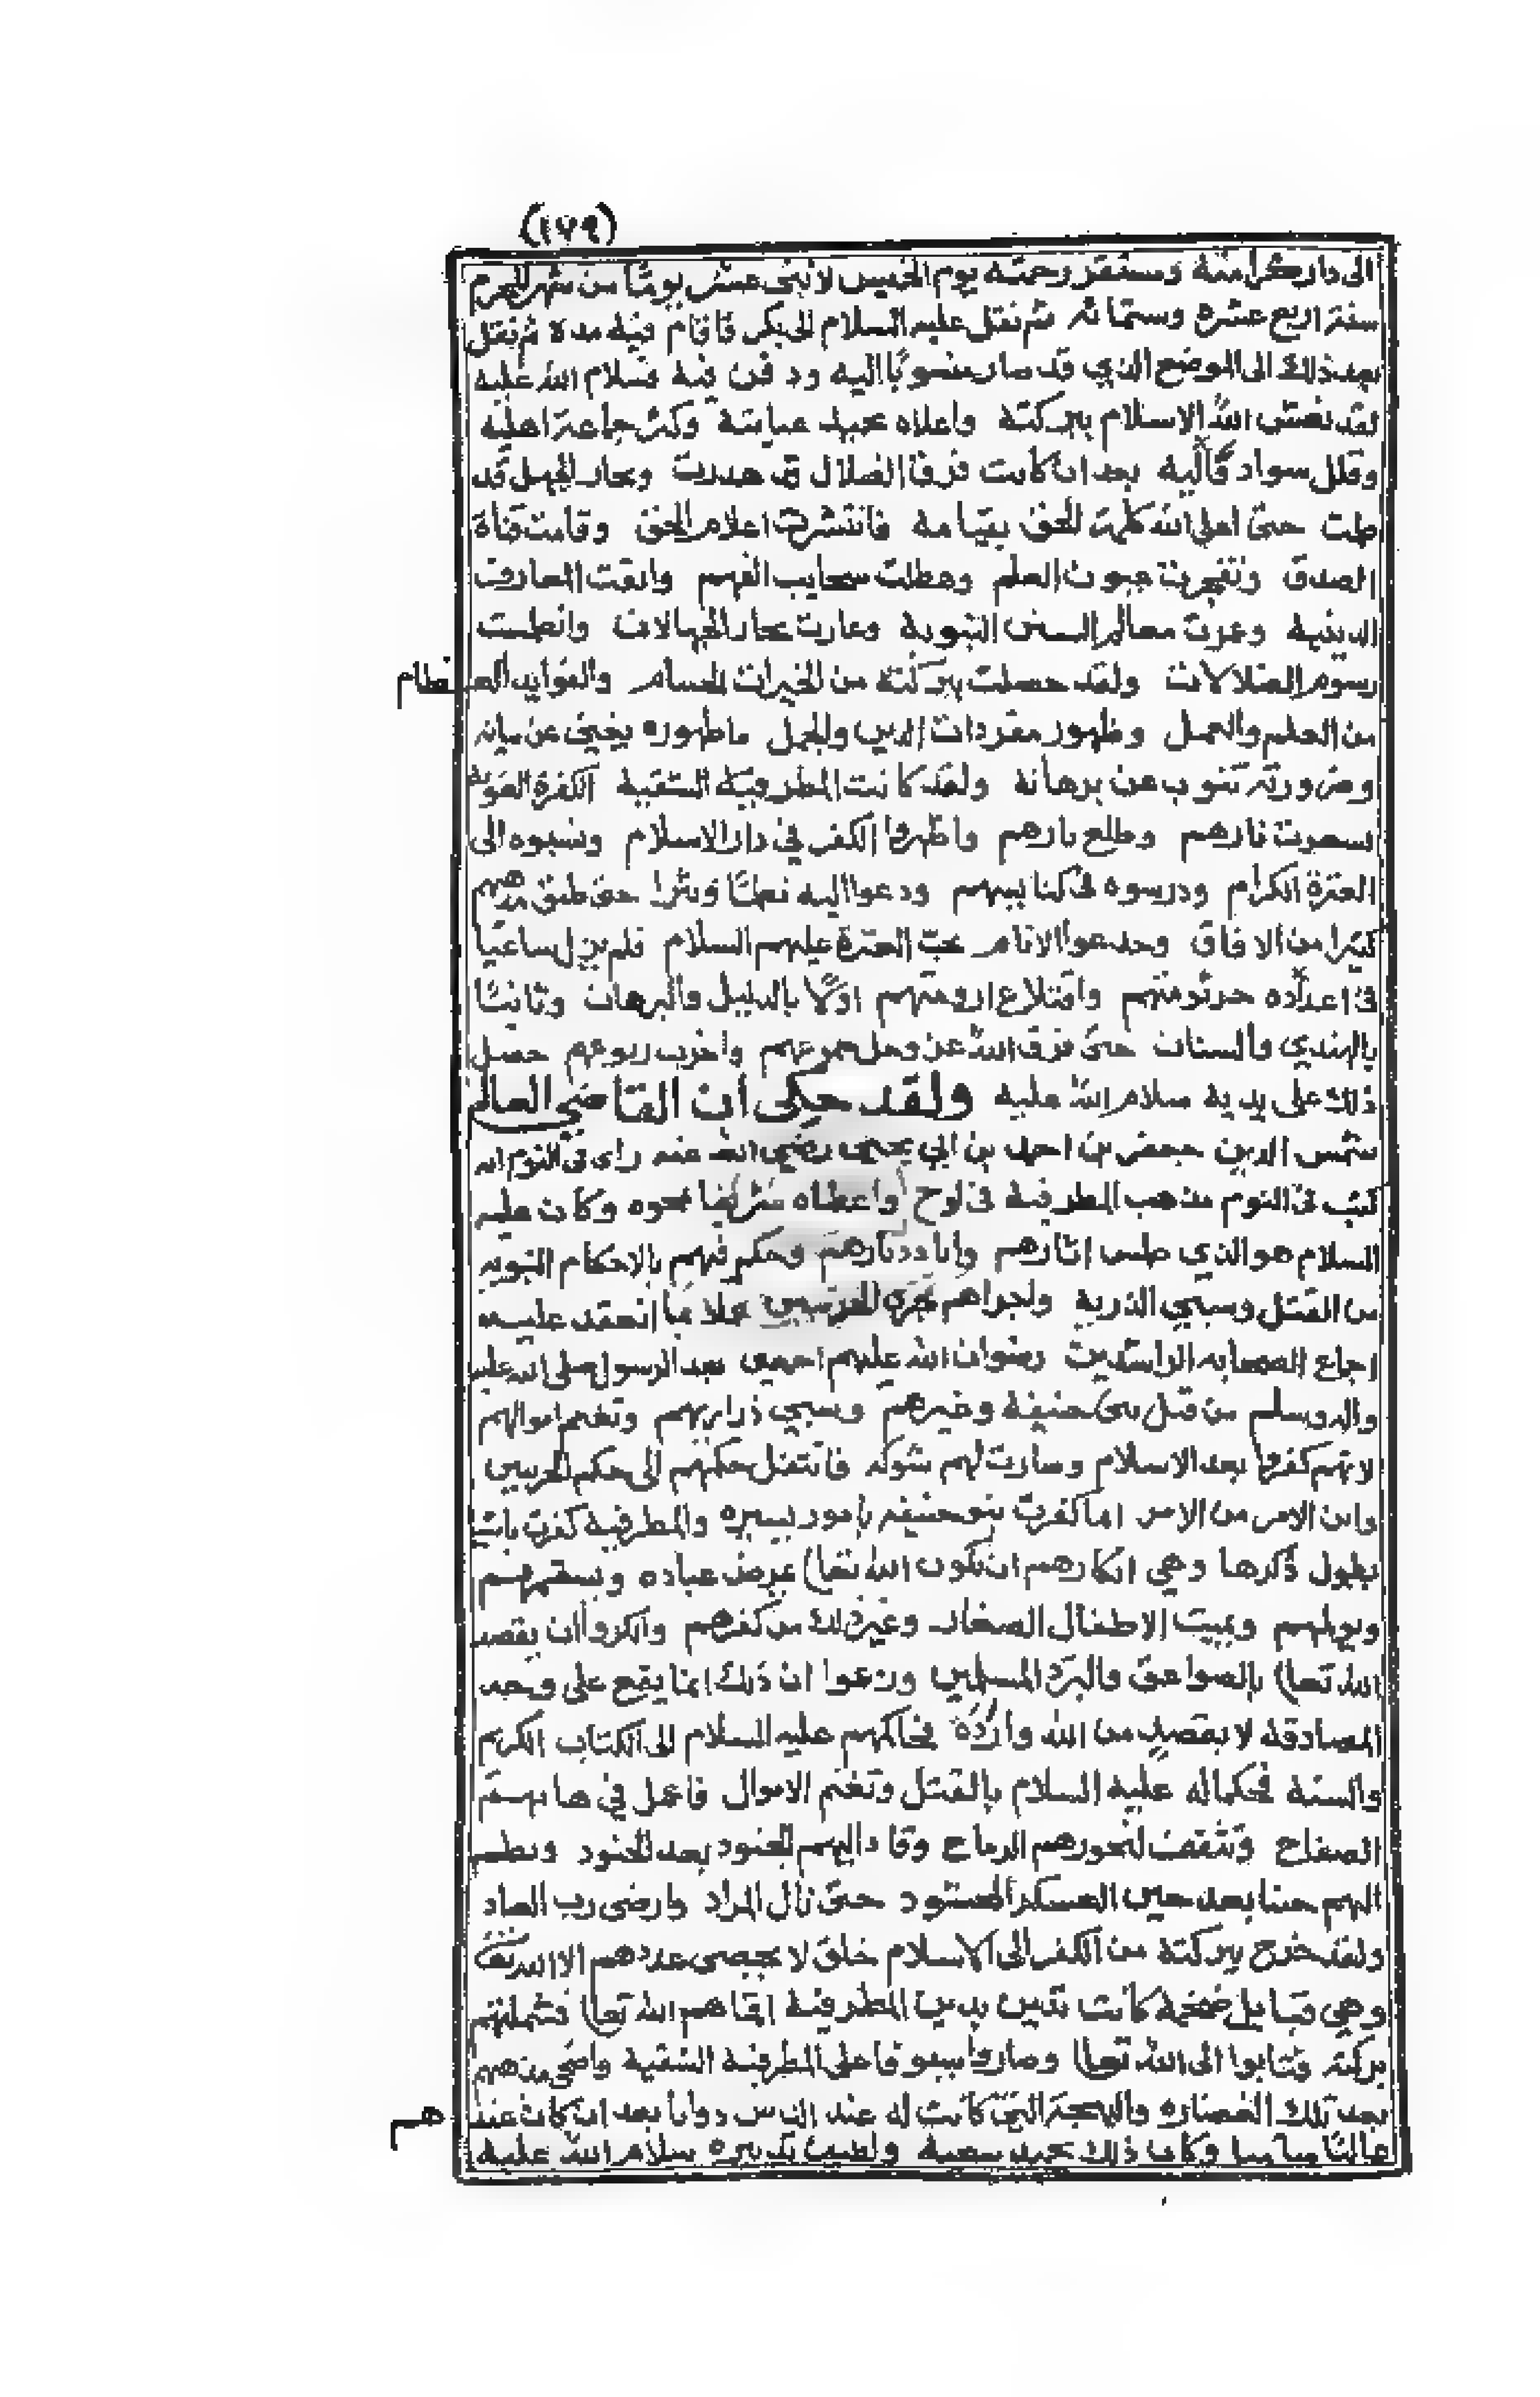 (١٧٩)
الى دار كرامته ومستقر رحمته يوم الخميس لاثنى عشر يومًا من شهر المحرم
سنة اربع عشره وستمائه ثم نقل عليه السلام الى بكر فاقام فيه مدة ثم نقل
بعد ذلك الى الموضع الذي قد صار منسوبًا اليه ودفن فيه فسلام الله عليه
لقد نعش الله الاسلام ببركته واعلاه بحميد عنايته وكثر جماعة اهليه
وقلل سواد قاليه بعد ان كانت فرق الضلال قد هدرت وبحار الجهل قد
طمت حتى اعلى الله كلمة الحق بقيامه فانتشرت اعلام الحق وقامت قناة
الصدق وتفجرت عيون العلم وهطلت سحايب الفهم واينعت المعارف
الدينية وعزت معالم السنن النبويه وغارت بحار الجهالات وانطمست
رسوم الضلالات ولقد حصلت ببركته من الخيرات الجسام والفوايد العظام
من العلم والعمل وظهور مفردات الدين والجمل ما ظهوره يغني عن بيانه
وضرورته تنوب عن برهانه ولقد كانت المطرفية الشقية الكفرة الغوية
تسعرت نارهم وطلع نارهم واظهروا الكفر في دار الاسلام ونسبوه الى
العترة الكرام ودرسوه فى كتابيبهم ودعوا اليه نظمًا ونثرا حتى طبق مذهبهم
كثيرا من الافاق وخدعوا الانام بمحبة العترة عليهم السلام فلم يزل ساعيًا
فى اعداده جرثومتهم واقتلاع ارومتهم اولًا بالدليل والبرهان وثانيًا
بالهندي والسنان حتى فرق الله عز وجل جموعهم واخرب ربوعهم حصل
ذلك على يديه سلام الله عليه ولقد حكى ان القاضي العالم
شمس الدين جعفر بن احمد بن ابي يحيى رضي الله عنه راى فى النوم انه
كتب فى النوم مذهب المطرفية فى لوح واعطاه مشرقيا فمحوه وكان عليه
السلام هو الذي طمس اثارهم واباد ديارهم وحكم فيهم بالاحكام النبويه
من القتل وسبي الذرية واجراهم مجرى الحربيين علا ما انعقد عليه
اجماع الصحابه الراشدين رضوان الله عليهم اجمعين بعد الرسول صلى الله عليه
واله وسلم من قتل بنى حنيفة وغيرهم وسبي ذراريهم وتغنم اموالهم
لانهم كفروا بعد الاسلام وصارت لهم شوكه فانتقل حكمهم الى حكم الحربيين
واين الامر من الامر انما كفرت بنو حنيفه بامور يسيره والمطرفية كفرت باشيا
يطول ذكرها وهي انكارهم ان يكون الله تعالى يمرض عباده ويسقمهم
ويولمهم ويميت الاطفال الصغار وغير ذلك من كفرهم وانكروا ان يقصد
الله تعالى بالصواعق والبرد المسلمين وزعموا ان ذلك انما يقع على وجه
المصادفة لا بقصد من الله واراده فحاكمهم عليه السلام الى الكتاب الكريم
والسنة فحكما له عليه السلام بالقتل وتغنم الاموال فاعمل في هاماتهم
الصفاح وثقف لنحورهم الرماح وقاد اليهم الجنود بعد الجنود ونظم
اليهم حينا بعد حين العسكر المحشود حتى نال المراد وارضى رب العباد
ولقد خرج ببركته من الكفر الى الاسلام خلق لا يحصى عددهم الا الله تعالى
وهي قبايل ضخمة كانت تدين بدين المطرفية اقماهم الله تعالى فشملتهم
بركته وتابوا الى الله تعالى وصاروا سيوفا على المطرفية الشقية واضحى مذهبهم
بعد تلك الغضاره والبهجة التي كانت له عند الناس دوابا بعد ان كان عندهم
عاليًا ساميا وكان ذلك بحميد سعيه ولطيف تدبيره سلام الله عليه